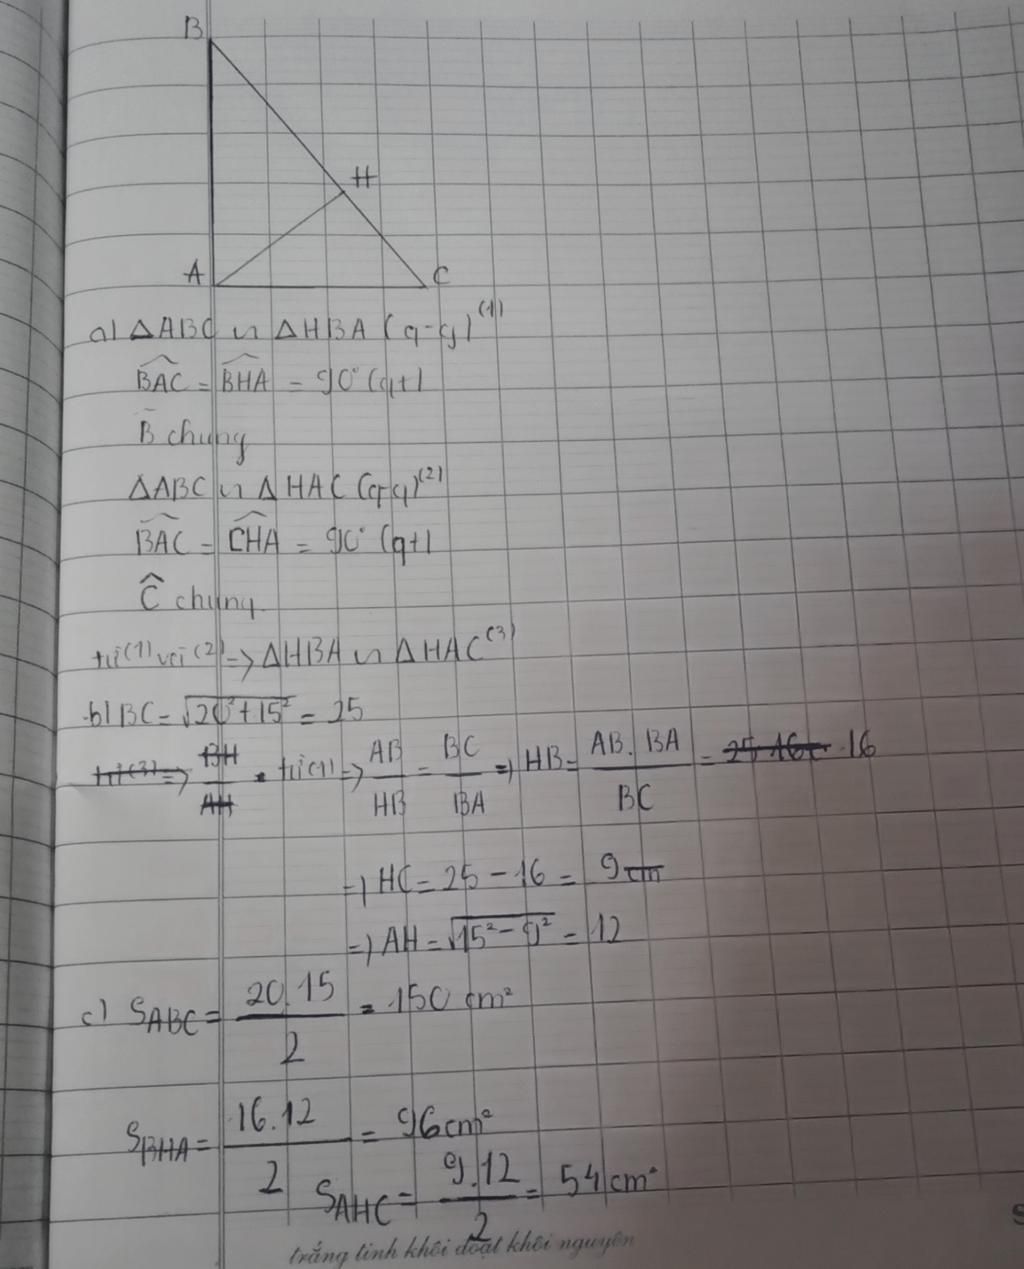 B
H
A
C
a) ΔABC ∽ ΔHBA (g-g) (1)
BAC = BHA = 90° (gt)
B chung
ΔABC ∽ ΔHAC (g-g) (2)
BAC = CHA = 90° (gt)
Ĉ chung
từ (1) với (2) => ΔHBA ∽ ΔHAC (3)
b) BC = √20²+15² = 25
từ (3) => BH/AH từ (1) => AB/HB = BC/BA => HB = AB.BA/BC = 16
=> HC = 25 - 16 = 9 cm
=> AH = √15²-9² = 12
c) S_ABC = 20.15/2 = 150 cm²
S_BHA = 16.12/2 = 96 cm²
S_AHC = 9.12/2 = 54 cm²
trắng tinh khôi đoạt khôi nguyên
S